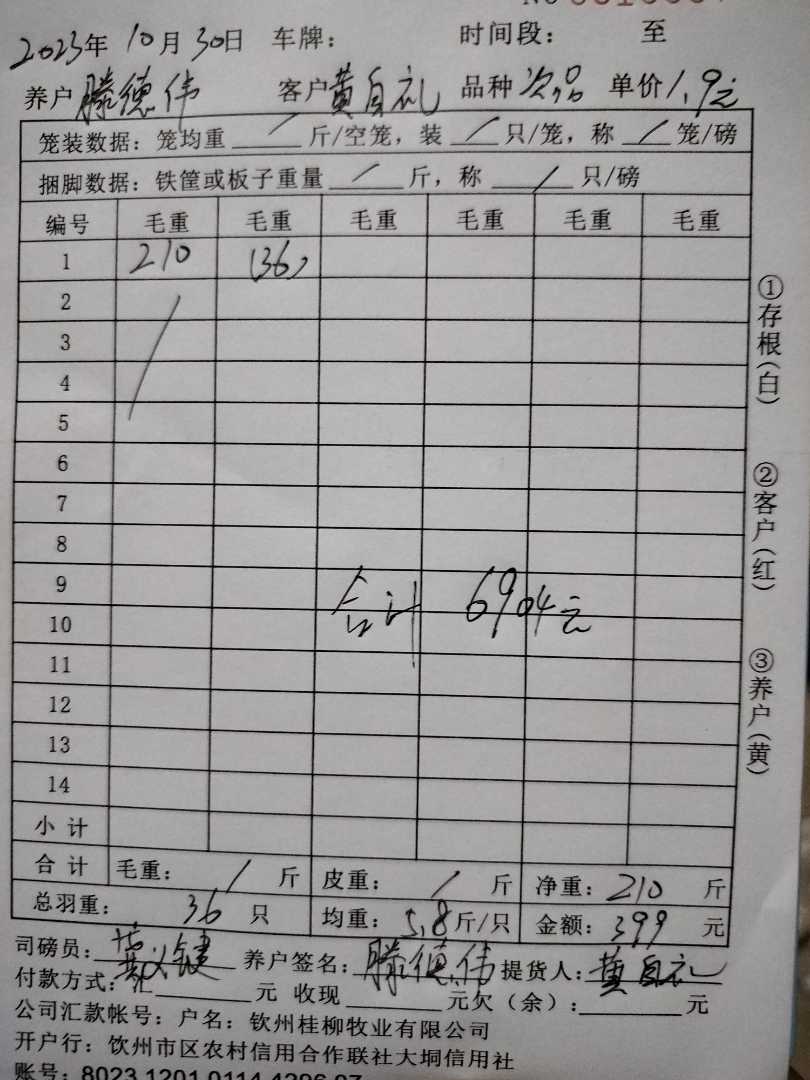 2023年 10月 30日 车牌： 时间段： 至
养户 滕德伟 客户 黄自礼 品种 次品 单价 1.9元
笼装数据：笼均重 / 斤/空笼，装 / 只/笼，称 / 笼/磅
捆脚数据：铁筐或板子重量 / 斤，称 / 只/磅
编号 毛重 毛重 毛重 毛重 毛重 毛重
1 210 (36)
2
3
4
5
6
7
8
9
合计 6904元
10
11
12
13
14
小计
合计 毛重： / 斤 皮重： / 斤 净重：210 斤
总羽重： 36 只 均重：5.8斤/只 金额：399 元
司磅员： 养户签名：滕德伟 提货人：黄自礼
付款方式：汇 元 收现 元欠（余）： 元
公司汇款帐号：户名：钦州桂柳牧业有限公司
开户行：钦州市区农村信用合作联社大垌信用社
账号：8023 1201 0114 4296 97
①存根（白）
②客户（红）
③养户（黄）